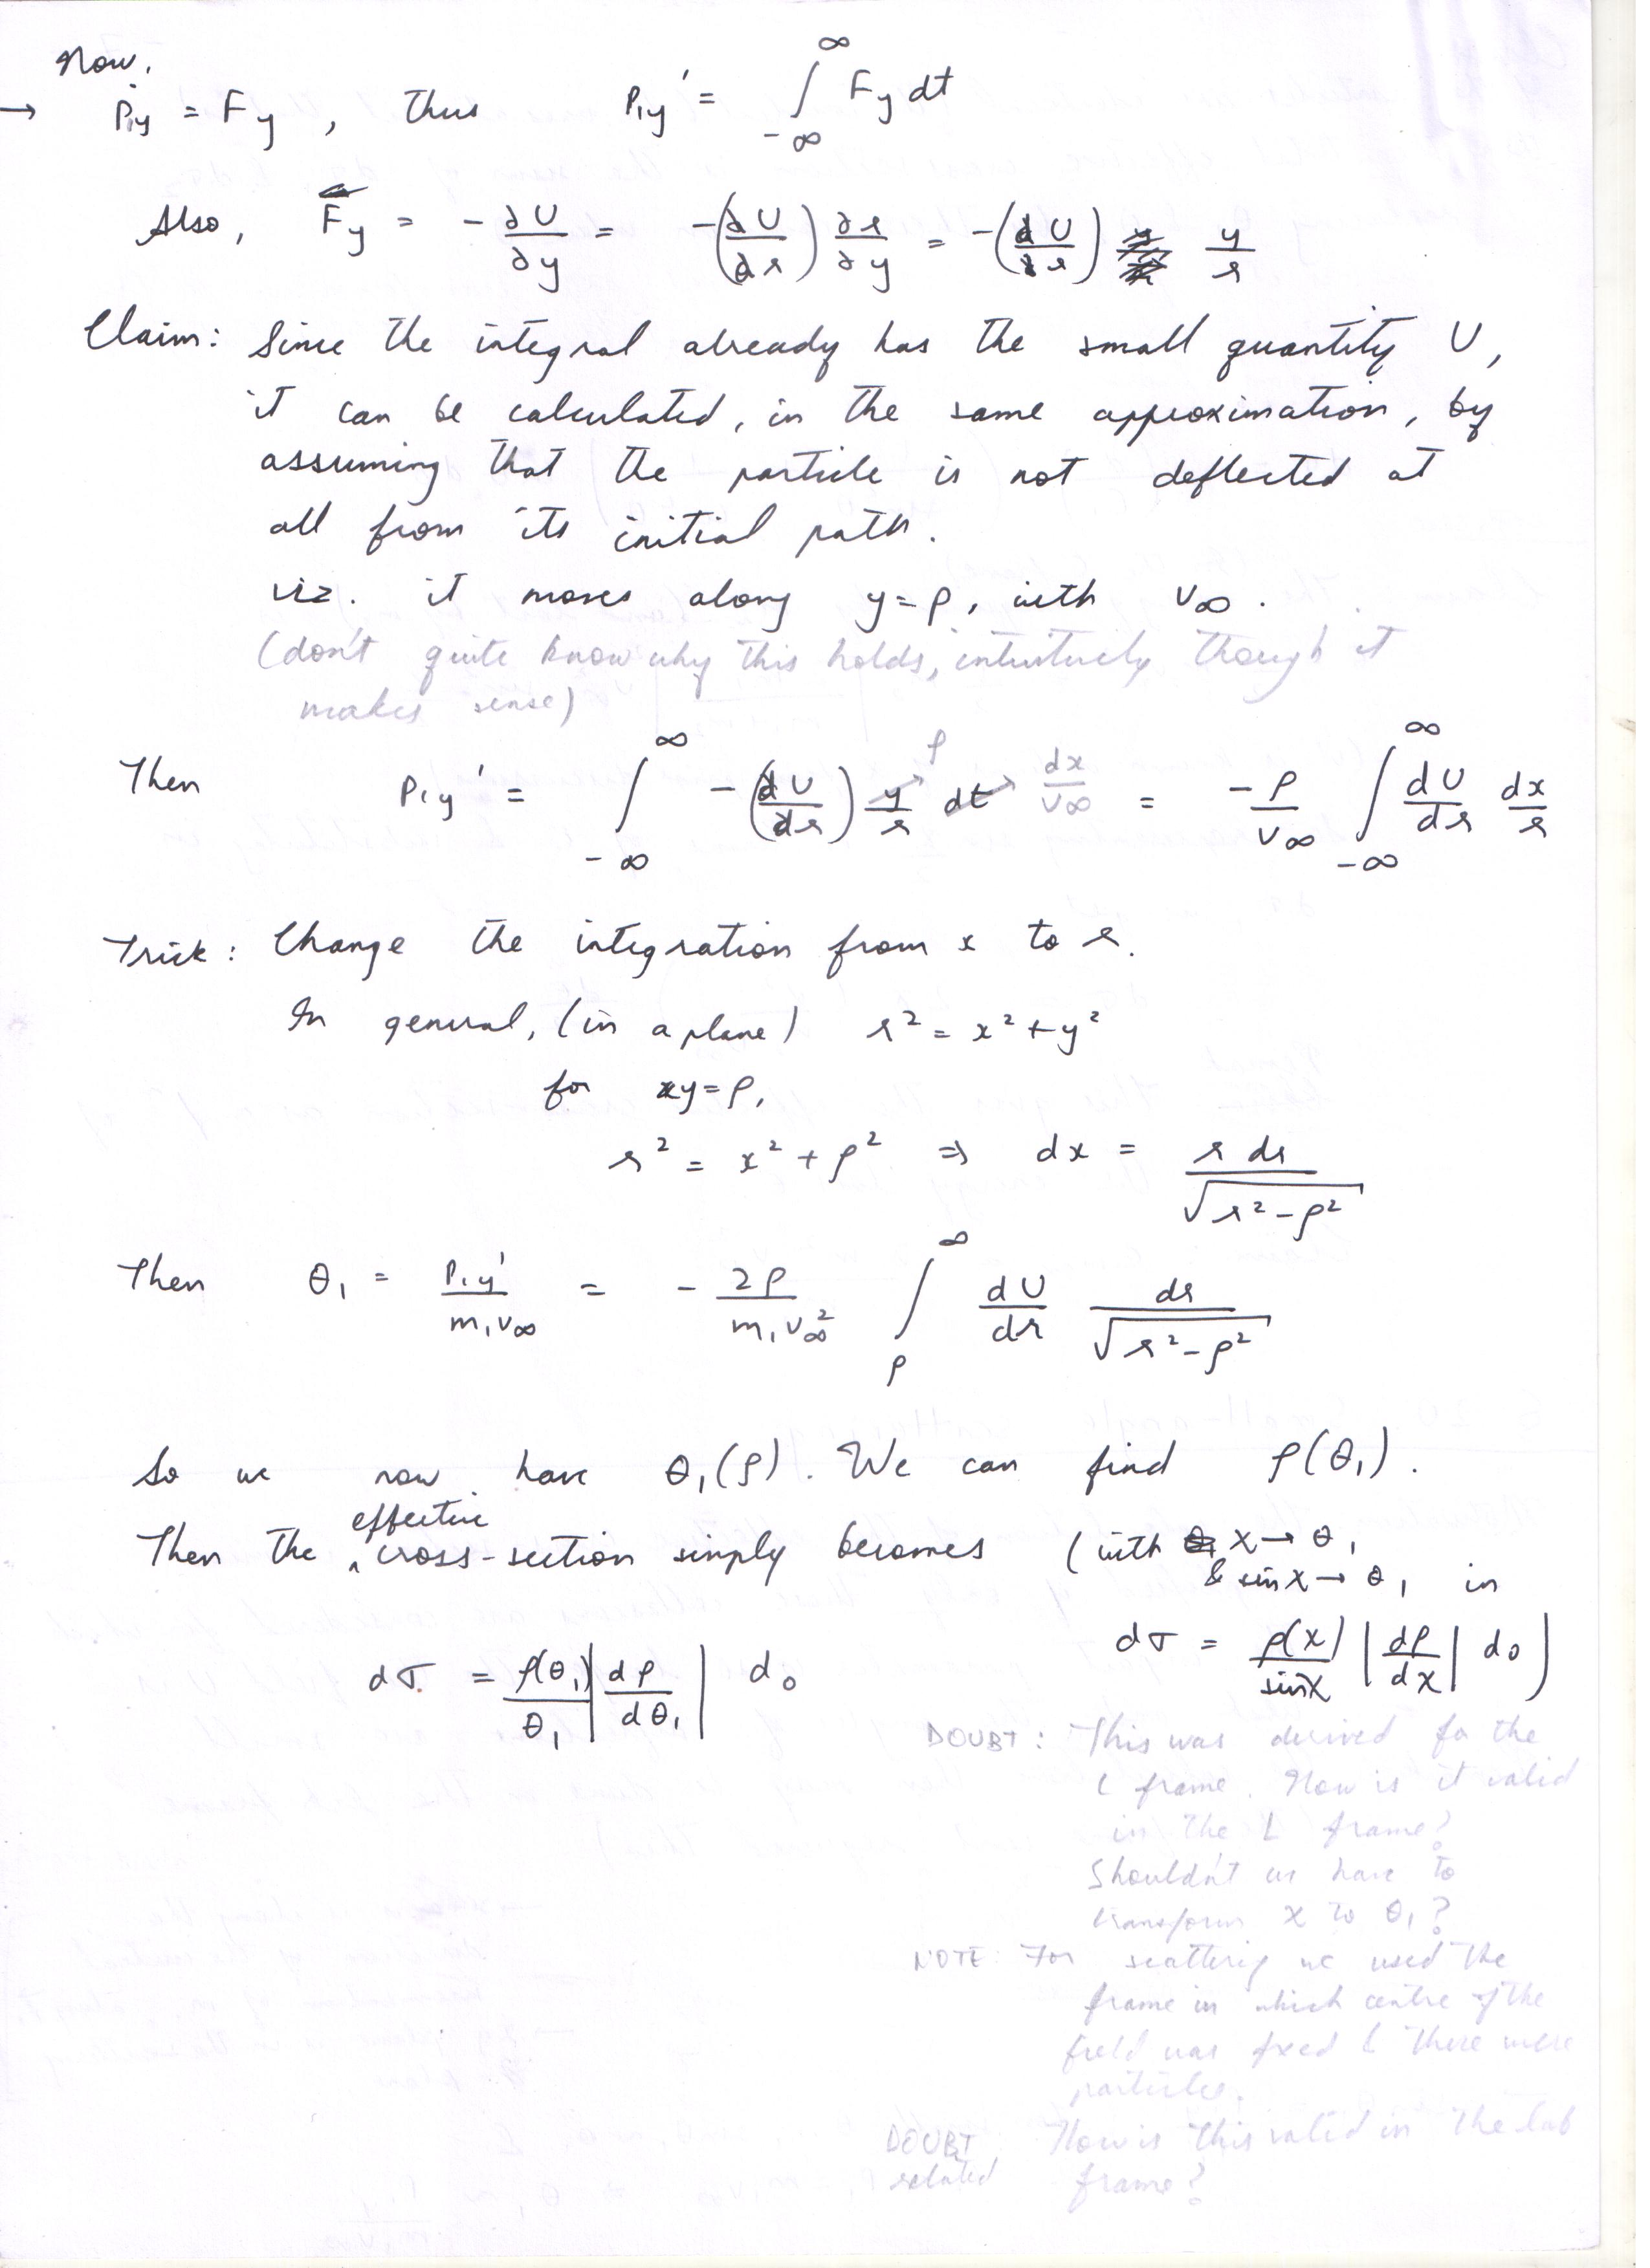 Now,
→ Ṗ₁y = Fy , thus P₁y′ = ∫_{-∞}^{∞} Fy dt
Also, Fy = -∂U/∂y = -(dU/dr) ∂r/∂y = -(dU/dr) y/r
Claim: Since the integral already has the small quantity U,
it can be calculated, in the same approximation, by
assuming that the particle is not deflected at
all from its initial path.
viz. it moves along y=ρ, with v∞.
(don't quite know why this holds, intuitively though it
makes sense)
Then P₁y′ = ∫_{-∞}^{∞} -(dU/dr) y/r → ρ dt → dx/v∞ = -ρ/v∞ ∫_{-∞}^{∞} dU/dr dx/r
Trick: Change the integration from x to r.
In general, (in a plane) r² = x² + y²
for y=ρ,
r² = x² + ρ² ⇒ dx = r dr/√(r²-ρ²)
Then θ₁ = P₁y′/m₁v∞ = -2ρ/m₁v∞² ∫_{ρ}^{∞} dU/dr dr/√(r²-ρ²)
So we now have θ₁(ρ). We can find ρ(θ₁).
Then the effective cross-section simply becomes (with χ→θ₁
& sinχ→θ₁ in
dσ = ρ(χ)/sinχ |dρ/dχ| do)
dσ = ρ(θ₁)/θ₁ |dρ/dθ₁| do
DOUBT: This was derived fo the
C frame. How is it valid
in the L frame?
Shouldn't we have to
transform χ to θ₁?
NOTE: For scattering we used the
frame in which centre of the
field was fixed & there were
particles.
DOUBT related: How is this valid in the lab
frame?